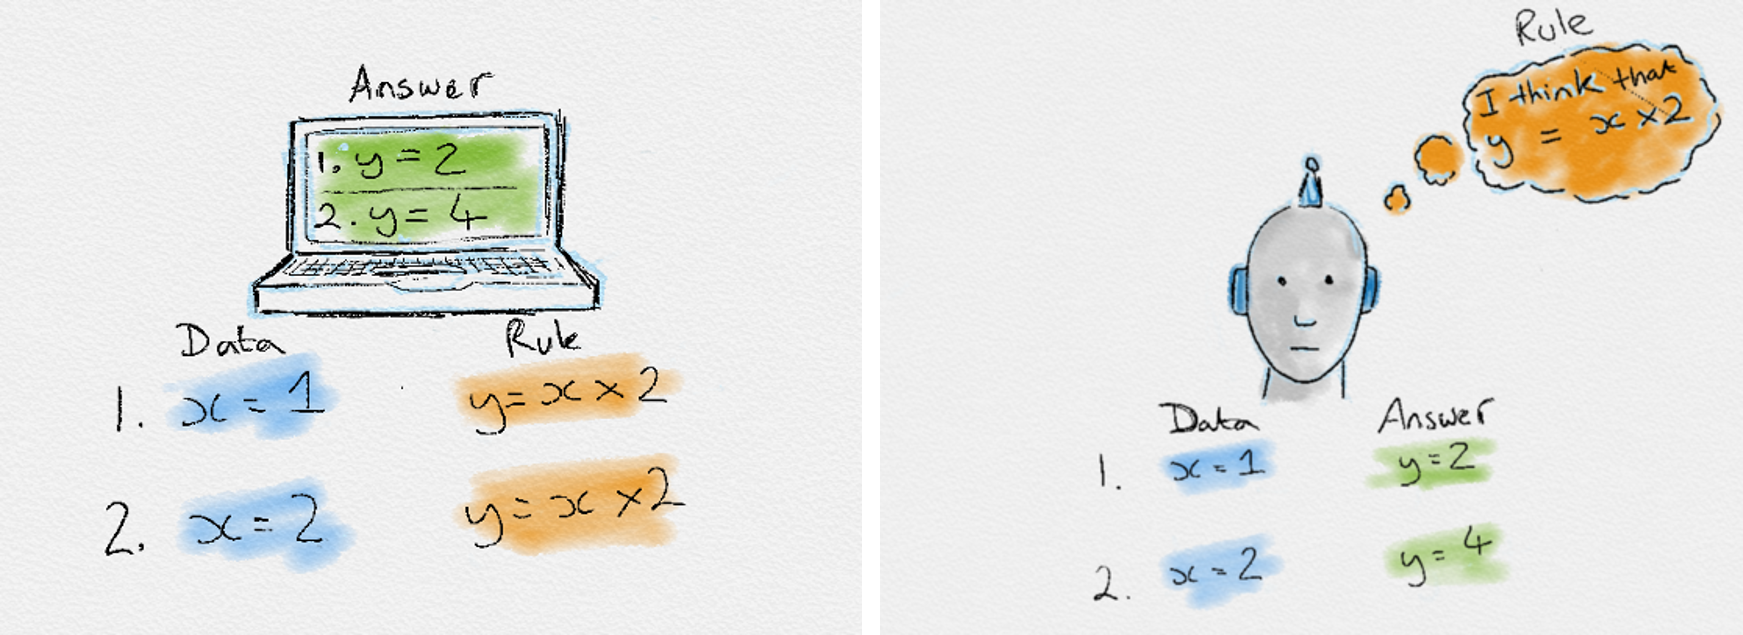 Answer
1. y = 2
2. y = 4
Data Rule
1. x = 1 y = x × 2
2. x = 2 y = x × 2
Rule
I think that
y = x × 2
Data Answer
1. x = 1 y = 2
2. x = 2 y = 4